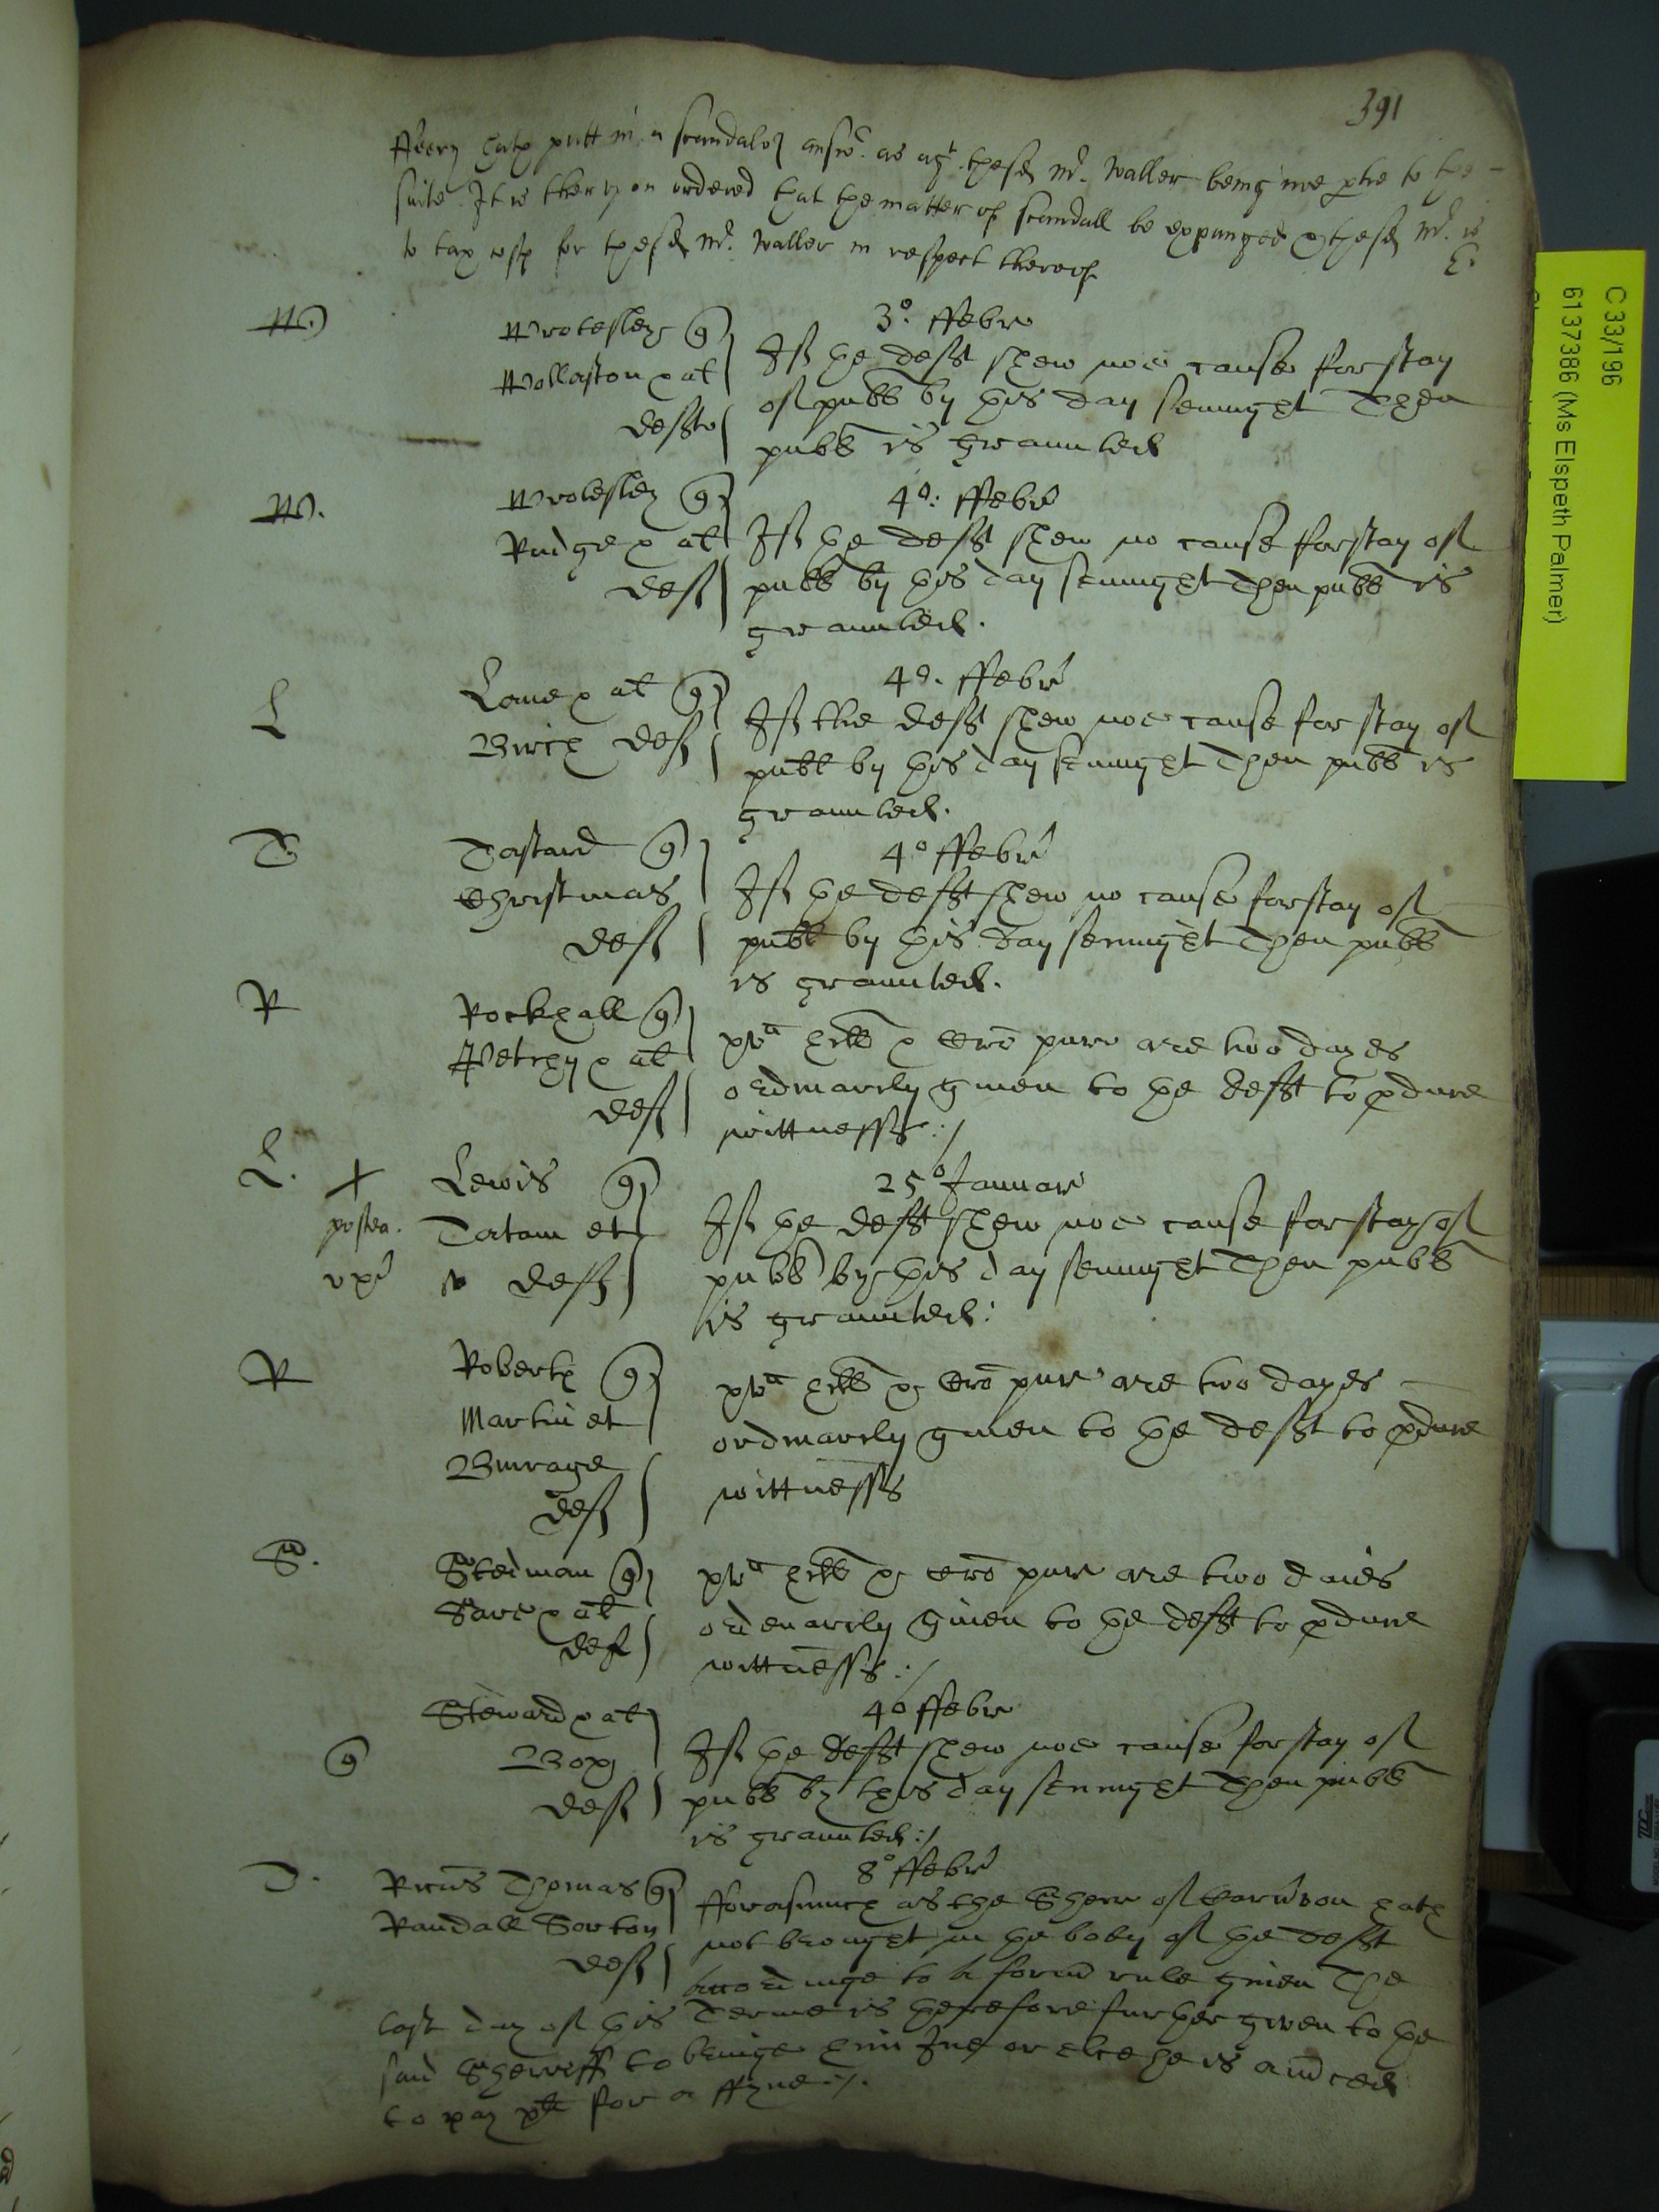 391
hath putt in a scandalous answ. as agt. these Mr. Waller being noe ptie to the
suite. It is thereupon ordered that the matter of scandall be expunged & these Mr. is
to tax costs for these Mr. Waller in respect thereof
W. Wrotesley q
Wollaston & al
deft
3o. ffebr
If the deft shew noe cause for stay
of publ by this day sennight Then
publ is graunted
W. Wrotesley q
Rudge & al
def
4o. ffebr
If the deft shew no cause for stay of
publ by this day sennight Then publ is
graunted.
L Lane & al q
Birch def
4o. ffebr
If the deft shew noe cause for stay of
publ by this day sennight Then publ is
graunted.
T q
Christmas
def
4o ffebr
If the deft shew no cause for stay of
publ by this day sennight Then publ
is graunted.
R Rockhall q
& al
def
are two dayes
ordinarily given to the deft to pduce
wittnesses :/
L. X Lewis q
postea. Tatam et
def
25o Januar
If the deft shew noe cause for stay of
publ by this day sennight Then publ
is graunted:
R Roberts q
Martin et
Burrage
def
are two dayes
ordinarily given to the deft to pduce
wittnesses
S. Stedman q
& al
def
are two daies
ordenarily given to the deft to pduce
wittnesses :/
Steward & al
q
def
4o ffebr
If the deft shew noe cause for stay of
publ by this day sennight Then publ
is graunted :/
T. Ricus Thomas q
Randall
def
8o ffebr
fforasmuch as the Sherr of hath
not brought in the body of the deft
accordinge to a form rule given The
last day of this Terme is therefore further given to the
said Sherriff to bringe him In or else he is amrced
to pay for a ffyne ./.
C 33/196
6137386 (Ms Elspeth Palmer)